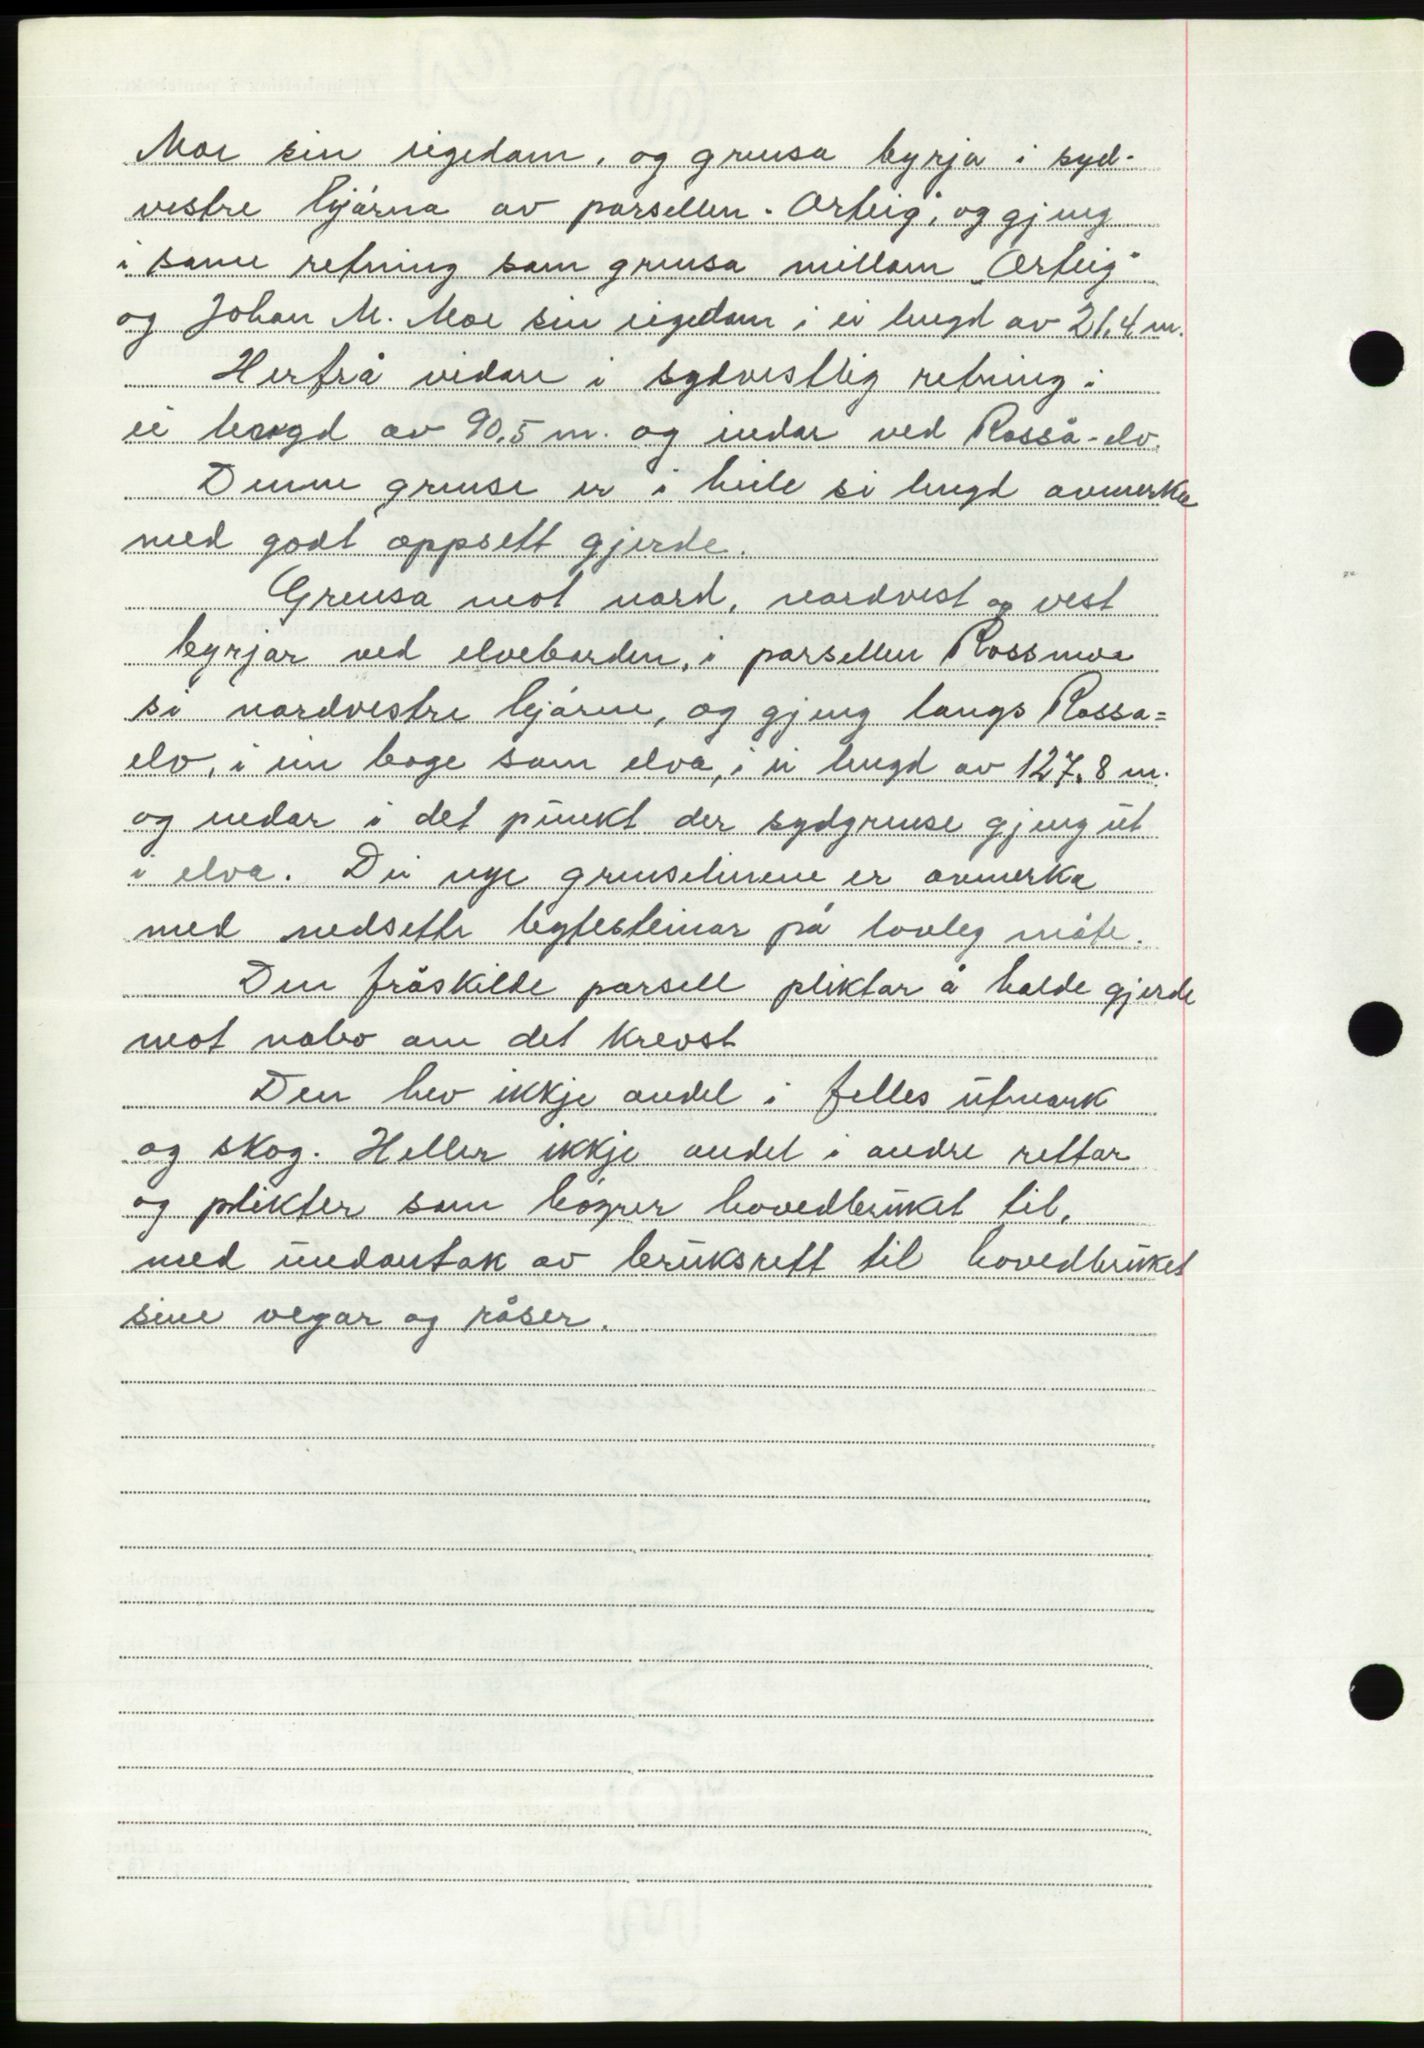 Moe sin eigedom, og grensa byrja i syd-
vestre hjørna av parsellen "Ørteig", og gjeng
i same retning som grensa millom "Ørteig"
og Johan M. Moe sin eigedom i ei lengd av 21.4 m.
Herfrå vidare i sydvestleg retning i
ei lengd av 90,5 m. og endar ved Rosså-elv.
Denne grense er i heile si lengd avmerka
med godt oppsett gjerde.
Grensa mot nord, nordvest og vest
byrjar ved elvebarden, i parsellen Rossmoe
si nordvestre hjørne, og gjeng langs Rossa=
elv, i ein boge som elva, i ei lengd av 127,8 m.
og nedar i det punkt der sydgrense gjeng út
i elva. Dei nye grenselinene er avmerka
med nedsette bytesteinar på lovleg måte.
Den fråskilde parsell pliktar å halde gjerde
mot nabo om det krevst
Den hev ikkje andel i felles útmark
og skog. Heller ikkje andel i andre rettar
og plikter som høyrer hovedbrúket til,
med úndantak av brúksrett til hovedbrúket
sine vegar og råser.